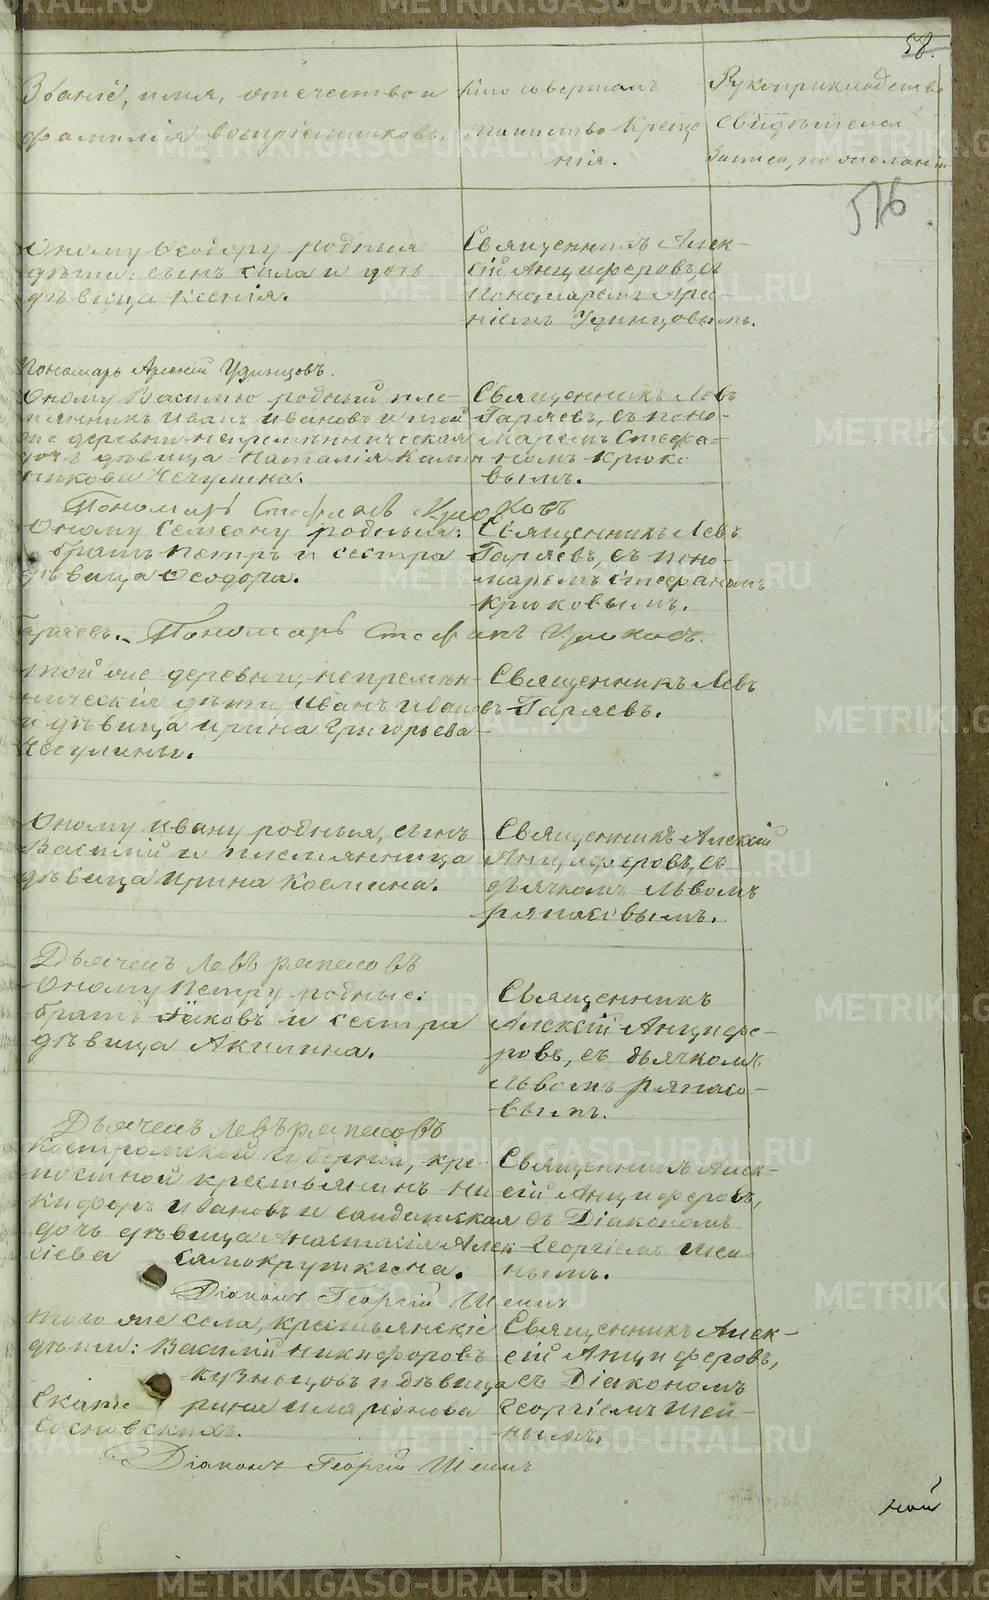 58.
Званіе, имя, отечество и
фамилія воспріемниковъ.
Кто совершалъ
таинство Креще
нія.
Рукоприкладство
свидѣтелей
записи, по желанію
516
Оному Ѳеодору родныя
дѣти: сынъ Сила и дочь
дѣвица Ксенія.
Священникъ Алек-
сій Анциферовъ, съ
Пономаремъ Арсе-
ніемъ Удинцовымъ.
Пономарь Арсеній Удинцовъ.
Оному Василью родный пле-
мянникъ Иванъ Ивановъ и той
же деревни непремѣнническая
дочь дѣвица Наталія Калин
никова Чечулина.
Священникъ Левъ
Гаряевъ, съ поно-
маремъ Стефа-
номъ Крюко
вымъ.
Пономарь Стефанъ Крюковъ
Оному Семеону родныя:
братъ Петръ и сестра
дѣвица Ѳеодора.
Священникъ Левъ
Гаряевъ, съ поно-
маремъ Стефаномъ
Крюковымъ.
Гаряевъ. Пономарь Стефанъ Крюковъ.
той же деревни, непремѣн-
ническія дѣти, Иванъ Ивановъ
и дѣвица Ирина Григорьева
Чечулины.
Священникъ Левъ
Гаряевъ.
Оному Ивану родныя, сынъ
Василій и племянница
дѣвица Ирина Космина.
Священникъ Алексій
Анциферовъ, съ
дьячкомъ Львомъ
Ряпасовымъ.
Дьячекъ Левъ Ряпасовъ
Оному Петру родные:
братъ Іяковъ и сестра
дѣвица Акилина.
Священникъ
Алексій Анцифе-
ровъ, съ дьячкомъ
Львомъ Ряпасо-
вымъ.
Дьячекъ Левъ Ряпасовъ
Костромской Губерніи, кре-
постной крестьянинъ Ни
кифоръ Ивановъ и солдатская
дочь дѣвица Анастасія Алек-
сіева Самокруткина.
Священникъ Алек-
сій Анциферовъ,
съ Діакономъ
Георгіемъ Шеи-
нымъ.
Діаконъ Георгій Шеинъ
того же села, крестьянскіе
дѣти: Василій Никифоровъ
Кузнецовъ и дѣвица
Екате рина Иларіонова
Сосновскихъ.
Священникъ Алек-
сій Анциферовъ,
съ Діакономъ
Георгіемъ Шеи-
нымъ.
Діаконъ Георгій Шеинъ
METRIKI.GASO-URAL.RU